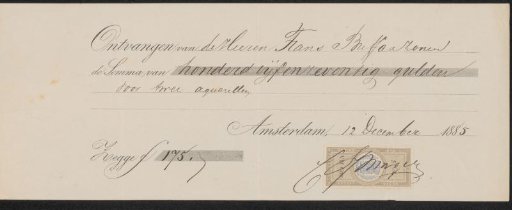 Ontvangen van de Heeren Frans Buffa & Zonen
de Somma van honderd vijfenzeventig gulden
voor twee aquarellen
Amsterdam, 12 December 1885
Zegge f 175.-